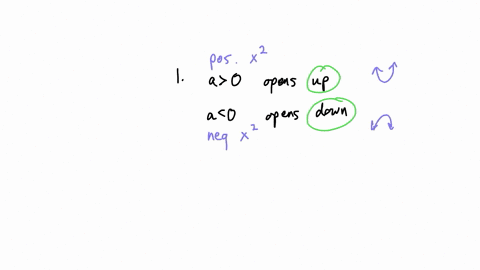 pos. x²
1. a>0 opens up
a<0 opens down
neq x²